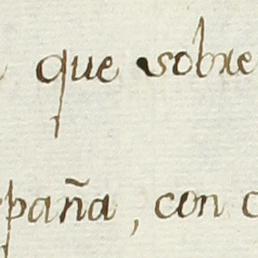 que sobre
spaña, con